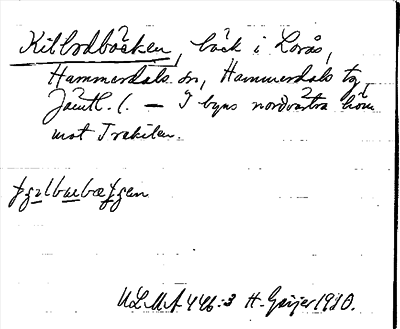 Killodbäcken, bäck i Lorås,
Hammerdals sn, Hammerdals tg,
Jämtl. l. — I byns nordvästra hörn
mot Trekilen.
ULMA 446:3 H. Geijer 1910.